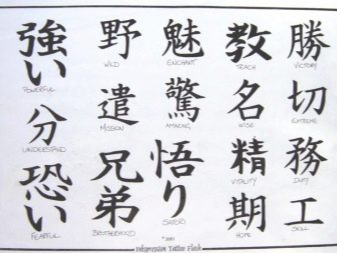 強い
POWERFUL
分
UNDERSTAND
恐い
FEARFUL
野
WILD
遣
MISSION
兄弟
BROTHERHOOD
魅
ENCHANT
驚
AMAZING
悟り
SATORI
教
TEACH
名
WISE
精
VITALITY
期
HOPE
勝
VICTORY
切
EXTREME
務
DUTY
工
SKILL
Tattoo Flash